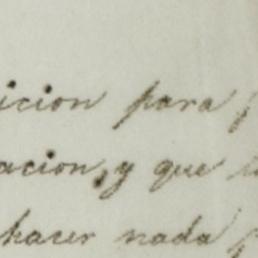 icion para
acion, y que
hacer nada